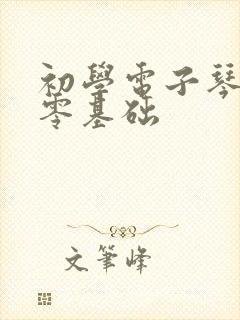 初學電子琴
零基础
文筆峰